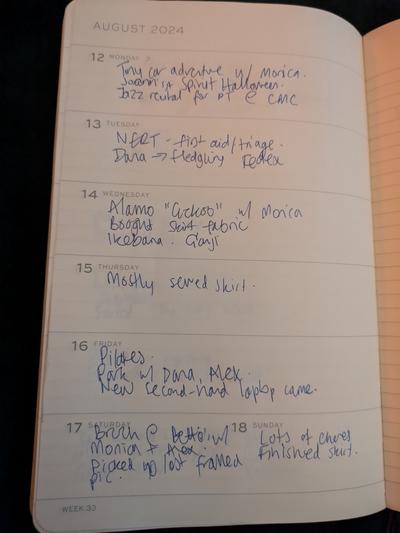 AUGUST 2024
12 MONDAY
Tiny car adventure w/ Monica.
Spirit Halloween.
Jazz recital for PT @ CMC
13 TUESDAY
NERT - first aid/triage.
Dana → fledgling FedEx
14 WEDNESDAY
Alamo "Cuckoo" w/ Monica
Bought skirt fabric
Ikebana.
15 THURSDAY
Mostly sewed skirt.
16 FRIDAY
Pilates.
Park w/ Dana, Alex.
New second-hand laptop came.
17 SATURDAY
Brunch @ w/
Monica + Alex.
Picked up last framed
pic.
18 SUNDAY
Lots of chores
Finished skirt.
WEEK 33